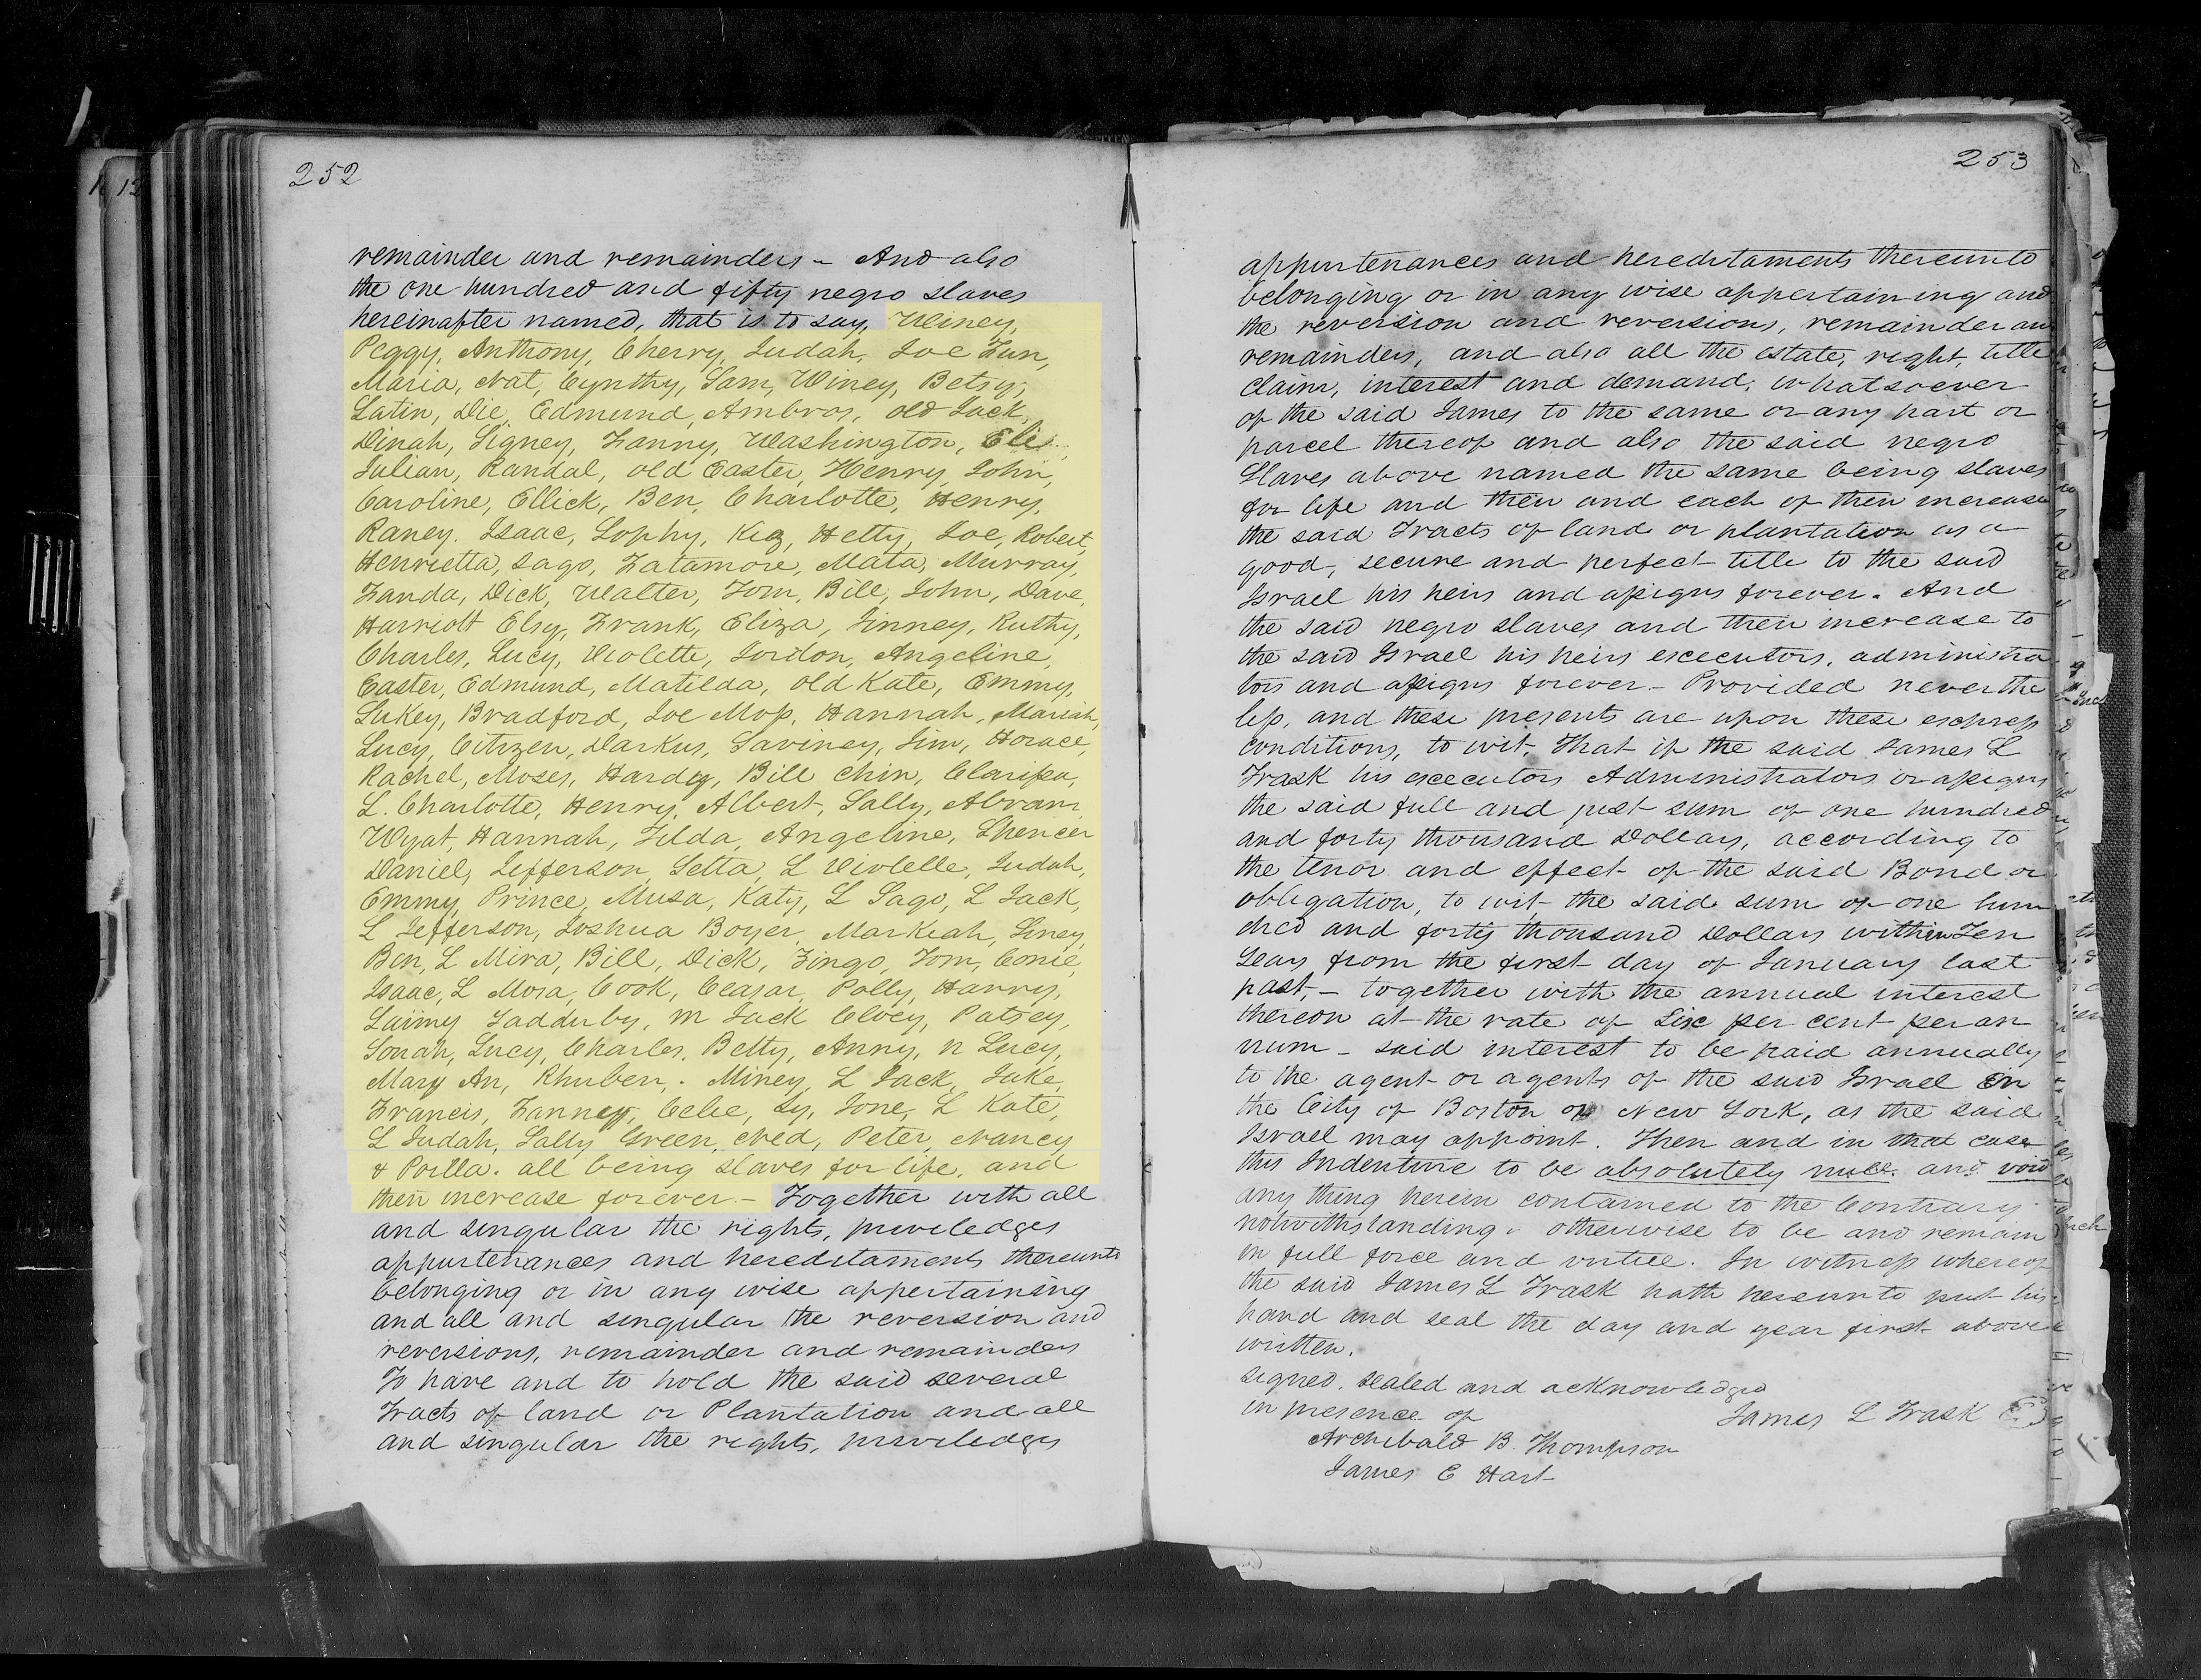 252
remainder and remainders - And also
the one hundred and fifty negro slaves
hereinafter named, that is to say, Winey,
Peggy, Anthony, Cherry, Judah, Joe Fun,
Maria, Nat, Cynthy, Sam, Winey, Betsy,
Latin, Die, Edmund, Ambros, old Jack,
Dinah, Signey, Fanny, Washington, Eli,
Julian, Randal, old Easter, Henry, John,
Caroline, Ellick, Ben, Charlotte, Henry,
Raney. Isaac, Sophy, Kiz, Hetty, Joe, Robert,
Henrietta, Sago, Fatamore, Mata, Murray,
Fanda, Dick, Walter, Tom, Bill, John, Dave,
Harriott Elsy, Frank, Eliza, Jinney, Ruthy,
Charles, Lucy, Violette, Jordon, Angeline,
Easter, Edmund, Matilda, old Kate, Emmy,
Sukey, Bradford, Joe Mop, Hannah, Mariah,
Lucy, Citizen, Darkus, Saviney, Jim, Horace,
Rachel, Moses, Hardy, Bill Chin, Clarissa,
L. Charlotte, Henry, Albert, Sally, Abram
Wyat, Hannah, Tilda, Angeline, Spencer
Daniel, Jefferson, Setta, L Violelle, Judah,
Emmy, Prince, Musa, Katy, L Sago, L Jack,
L Jefferson, Joshua Boyer, Markiah, Siney,
Ben, L Mira, Bill, Dick, Zingo, Tom, Conie,
Isaac, L Mosa, Cook, Ceasar, Polly, Harry,
Laimy Tadduby, M Jack Clocy, Patsey,
Sonah, Lucy, Charles, Betty, Anny, N Lucy,
Mary An, Rhuben, . Miney, L Jack, Jake,
Francis, Fanney, Celie, Sy, Jone, L Kate,
L Judah, Sally Green, Ned, Peter, Nancy
& Poilla. all being slaves for life, and
their increase forever - Together with all
and singular the rights, priviledges
appurtenances and hereditaments thereunto
belonging or in any wise appertaining
and all and singular the reversion and
reversions, remainder and remainders
To have and to hold the said several
Tracts of land or Plantation and all
and singular the rights, priviledges
253
appurtenances and hereditaments thereunto
belonging or in any wise appertaining and
the reversion and reversions, remainder an
remainders, and also all the estate, right, title
claim, interest and demand, whatsoever
of the said James to the same or any part or
parcel thereof and also the said negro
Slaves above named the same being slaves
for life and their and each of their increase
the said Tracts of land or plantation as a
good, secure and perfect title to the said
Israel his heirs and assigns forever. And
the said negro slaves and their increase to
the said Israel his heirs executors, administra
tors and assigns forever - Provided neverthe
less, and these presents are upon these express
conditions, to wit, That if the said James L
Trask his executors Administrators or assigns
the said full and just sum of one hundred
and forty thousand Dollars, according to
the tenor and effect of the said Bond or
obligation, to wit the said sum of one hun
dred and forty thousand Dollars within Ten
Years from the first day of January last
past, - together with the annual interest
thereon at the rate of Six per cent per an
num - said interest to be paid annually
to the agent or agents of the said Israel in
the City of Boston or New York, as the said
Israel may appoint. Then and in that case
this Indenture to be absolutely null. and void
any thing herein contained to the Contrary
notwithstanding. otherwise to be and remain
in full force and virtue. In witness whereof
the said James L Trask hath hereunto put his
hand and seal the day and year first above
written.
Signed, sealed and acknowledged
in presence of James L Trask
Archibald B. Thompson
James E Hart